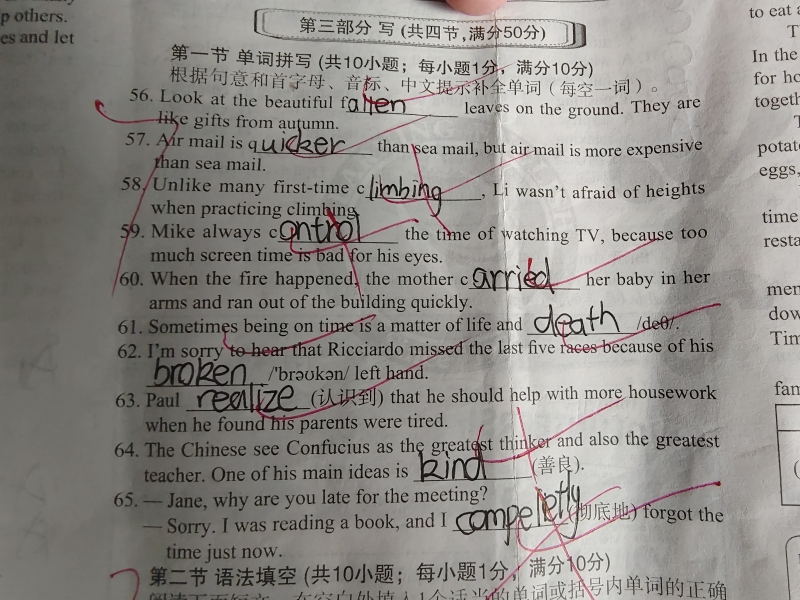 p others.
es and let
第三部分 写 (共四节,满分50分)
第一节 单词拼写 (共10小题；每小题1分，满分10分)
根据句意和首字母、音标、中文提示补全单词（每空一词）。
56. Look at the beautiful fallen leaves on the ground. They are
like gifts from autumn.
57. Air mail is quicker than sea mail, but air mail is more expensive
than sea mail.
58. Unlike many first-time climbing, Li wasn't afraid of heights
when practicing climbing.
59. Mike always control the time of watching TV, because too
much screen time is bad for his eyes.
60. When the fire happened, the mother carried her baby in her
arms and ran out of the building quickly.
61. Sometimes being on time is a matter of life and death /deθ/.
62. I'm sorry to hear that Ricciardo missed the last five races because of his
broken /'brəʊkən/ left hand.
63. Paul realize (认识到) that he should help with more housework
when he found his parents were tired.
64. The Chinese see Confucius as the greatest thinker and also the greatest
teacher. One of his main ideas is kind (善良).
65. — Jane, why are you late for the meeting?
— Sorry. I was reading a book, and I compeletly (彻底地) forgot the
time just now.
第二节 语法填空 (共10小题；每小题1分，满分10分)
阅读下面短文，在空白处填入1个适当的单词或括号内单词的正确
to eat
In the
for ho
togeth
potato
eggs,
time
resta
men
dow
Tim
fam